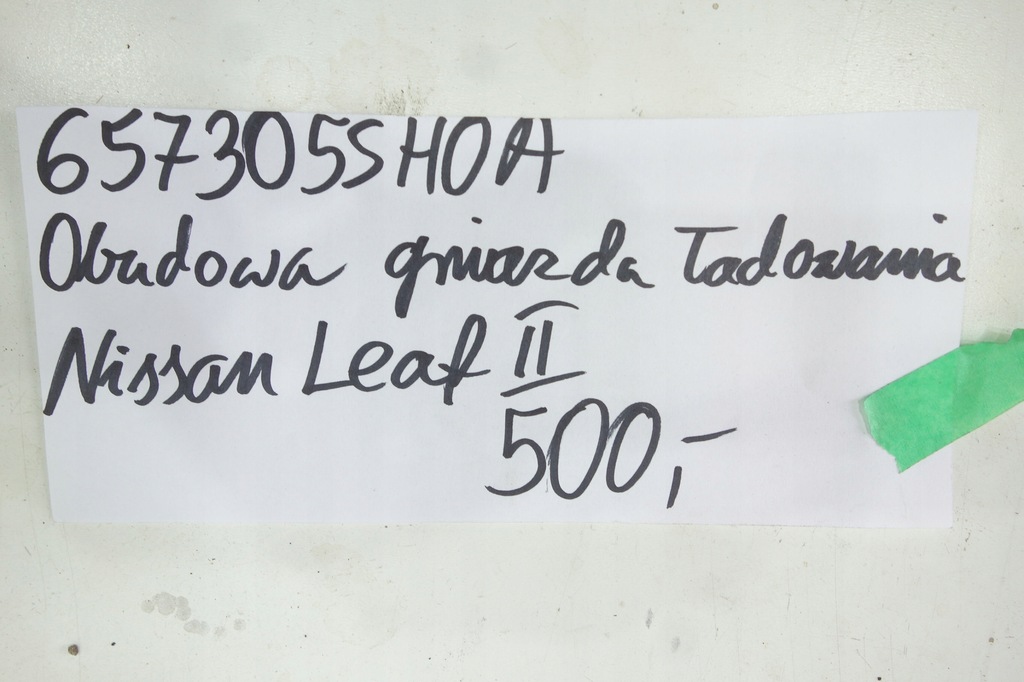 657305SH0A
Obudowa gniazda Ładowania
Nissan Leaf II
500,-